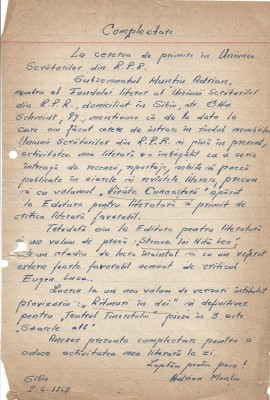 Complectare
La cererea de primire în Uniunea
Scriitorilor din R.P.R.
Subsemnatul Munțiu Adrian,
membru al Fondului literar al Uniunii Scriitorilor
din R.P.R., domiciliat în Sibiu, str. Otto
Schmidt, 22, menționez că de la data la
care am făcut cerere de intrare în rîndul membrilor
Uniunii Scriitorilor din R.P.R. și pînă în prezent,
activitatea mea literară s-a îmbogățit cu o serie
întreagă de recenzii, reportaje, schițe și poezii
publicate în ziarele și revistele literare, precum
și cu volumul „Vîrsta Cunoașterii” apărut
la Editura pentru literatură și primit de
critica literară favorabil.
Totodată am la Editura pentru literatură
un volum de proză „Steaua lui Niță Leu”
într-un stadiu de lucru înaintat cu un referat
extern foarte favorabil semnat de criticul
Eugen Luca.
Lucrez la un nou volum de versuri intitulat
provizoriu: „Ritmuri în doi” și definitivez
pentru „Teatrul Tineretului” piesa în 3 acte
Anexez prezenta complectare pentru a
aduce activitatea mea literară la zi.
Luptăm pentru pace!
Adrian Munțiu
Sibiu